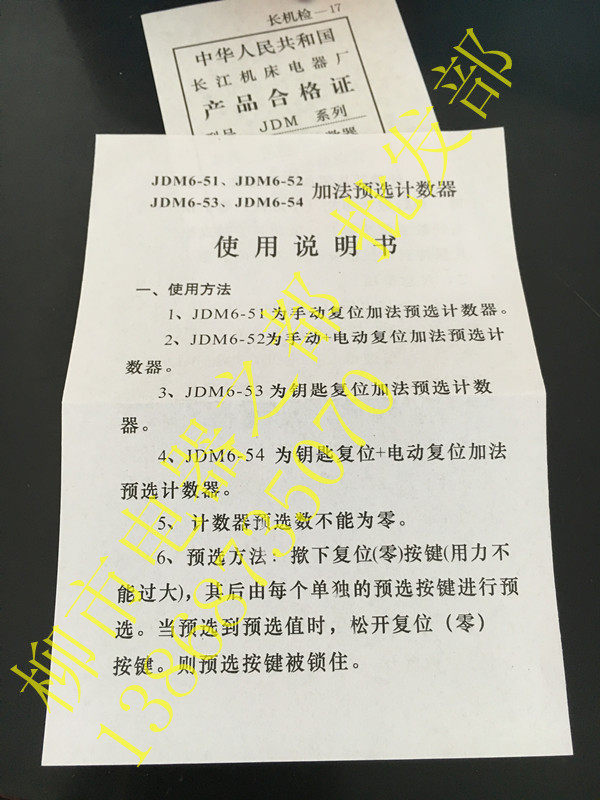 长机检－17
中华人民共和国
长江机床电器厂
产品合格证
型号 JDM 系列
数器
JDM6-51、JDM6-52
JDM6-53、JDM6-54
加法预选计数器
使用说明书
一、使用方法
1、JDM6-51为手动复位加法预选计数器。
2、JDM6-52为手动+电动复位加法预选计
数器。
3、JDM6-53为钥匙复位加法预选计数
器。
4、JDM6-54 为钥匙复位+电动复位加法
预选计数器。
5、计数器预选数不能为零。
6、预选方法：揿下复位(零)按键(用力不
能过大)，其后由每个单独的预选按键进行预
选。当预选到预选值时，松开复位（零）
按键。则预选按键被锁住。
柳市电器之都 批发部
13868735070